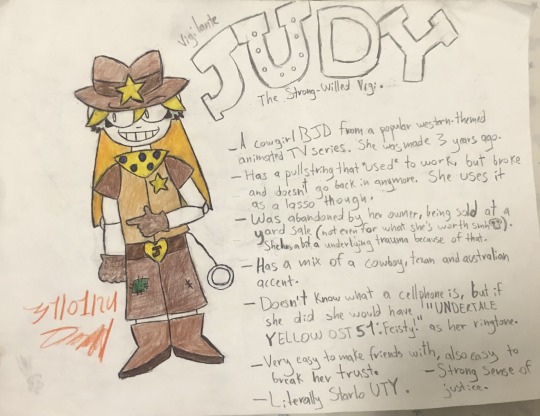 Vigilante
JUDY
The Strong-Willed Vigi.
- A cowgirl BJD from a popular western-themed
animated TV series. She was made 3 years ago.
- Has a pullstring that "used" to work, but broke
and doesn't go back in anymore. She uses it
as a lasso though.
- Was abandoned by her owner, being sold at a
yard sale (not even for what she's worth smh).
She has a bit a underlying trauma because of that.
- Has a mix of a cowboy, texan and australian
accent.
- Doesn't know what a cellphone is, but if
she did she would have "UNDERTALE
YELLOW OST 51: Feisty!" as her ringtone.
- Very easy to make friends with, also easy to
break her trust.
- Strong sense of
justice.
- Literally Starlo UTY.
J